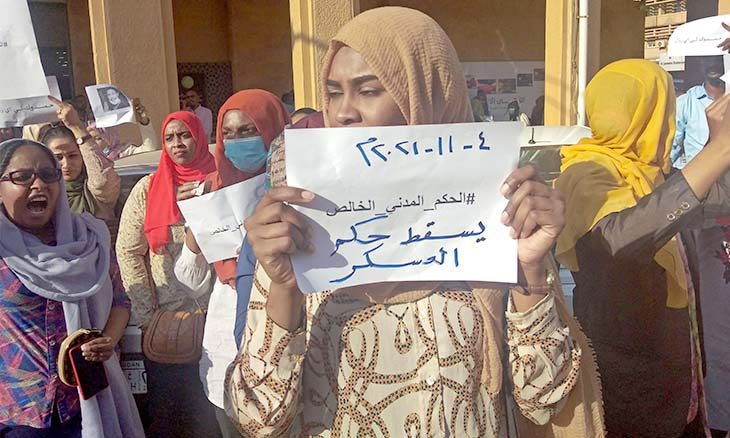 ٤-١١-٢٠٢١م
#الحكم_المدني_الخالص
يسقط حكم
العسكر